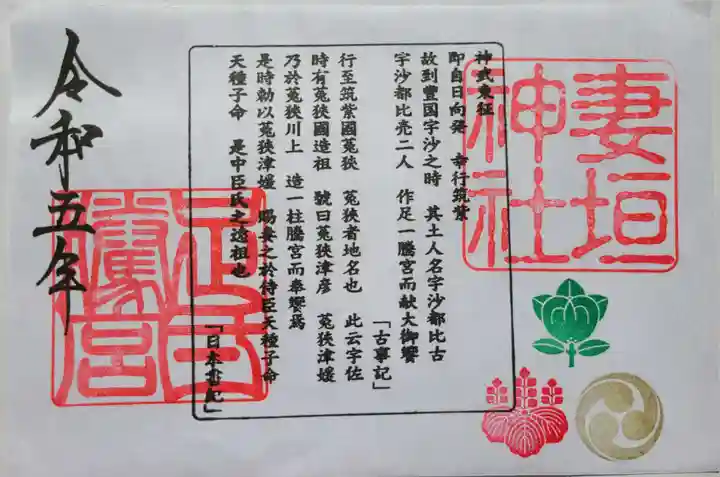 妻垣
神社
神武東征
即自日向発 幸行筑紫
故到豊国宇沙之時 其土人名宇沙都比古
宇沙都比売二人 作足一騰宮而献大御饗
「古事記」
行至筑紫國菟狹 菟狹者地名也 此云宇佐
時有菟狹國造祖 號曰菟狹津彦 菟狹津媛
乃於菟狹川上 造一柱騰宮而奉饗焉
是時勅以菟狹津媛 賜妻之於侍臣天種子命
天種子命 是中臣氏之遠祖也
「日本書紀」
足一
騰宮
令和五年